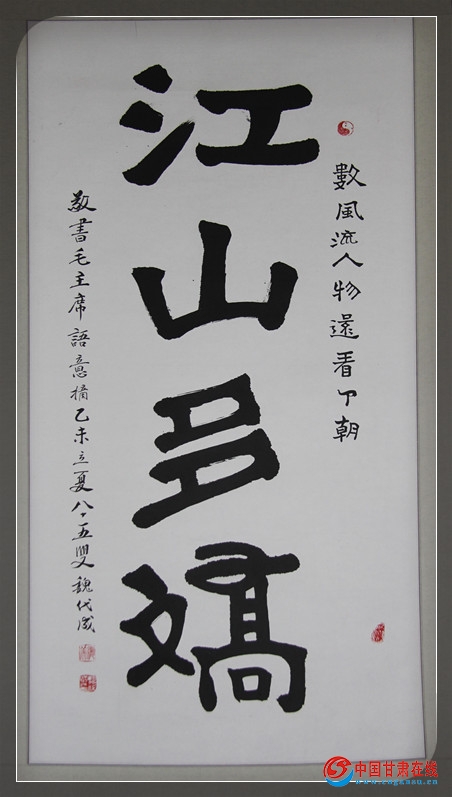 數風流人物還看今朝
江山多嬌
敬書毛主席語意摘乙未立夏八五叟魏代成
中国甘肃在线